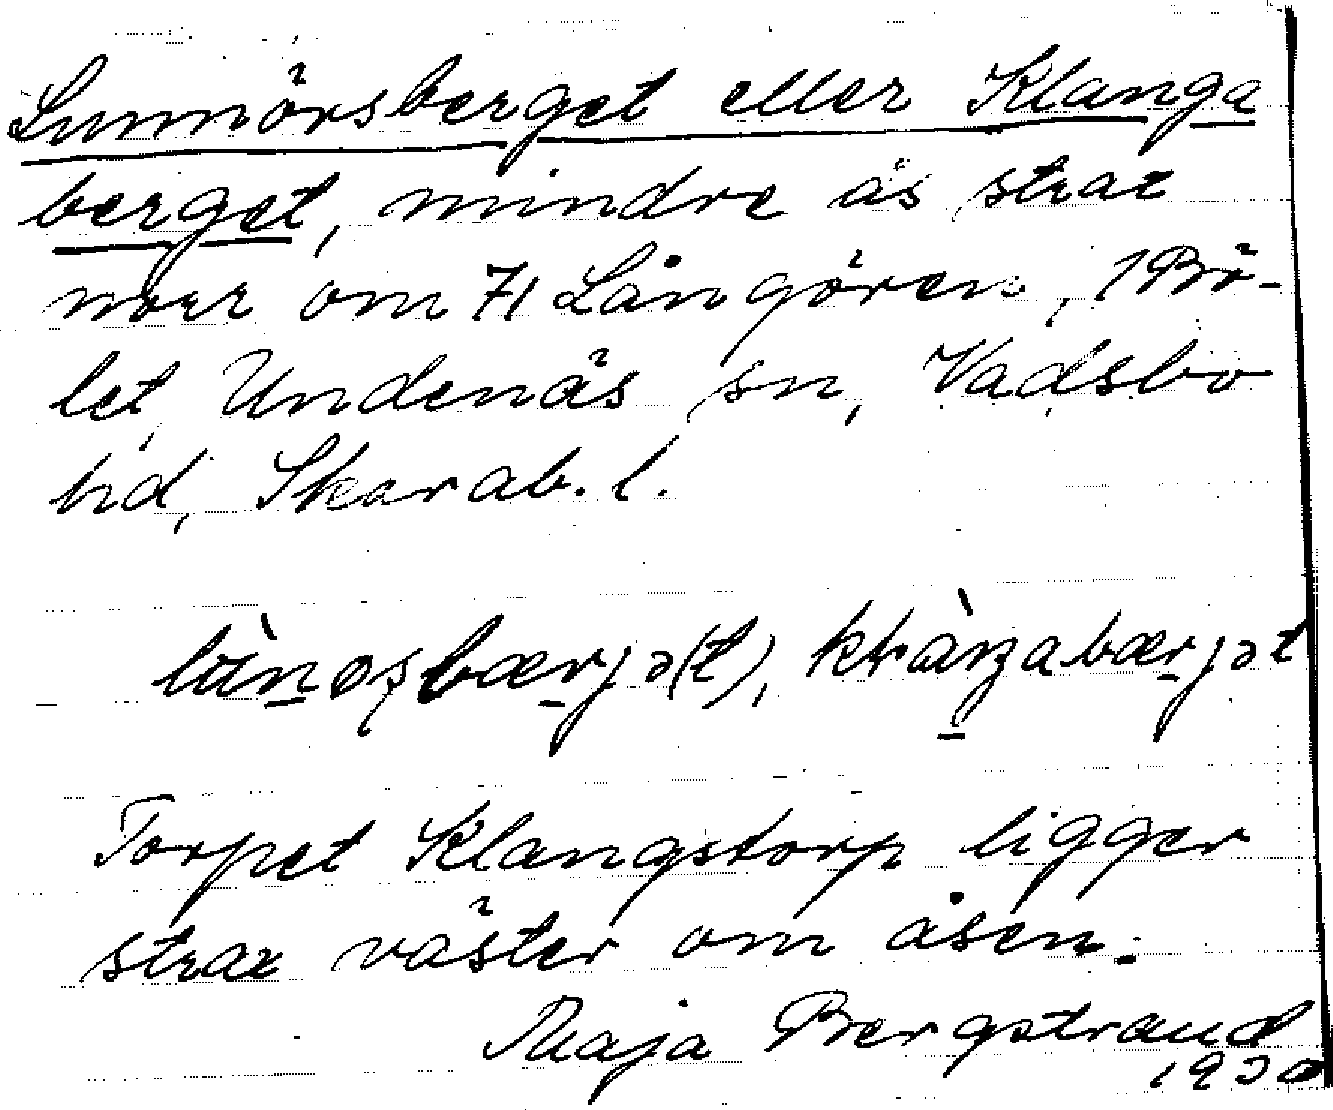 Lunnörsberget eller Klanga
berget, mindre ås strax
norr om 71 Långören, 1 Bö-
let, Undenäs sn, Vadsbo
hd, Skarab. l.
Torpet Klangstorp ligger
strax väster om åsen.
Maja Bergstrand